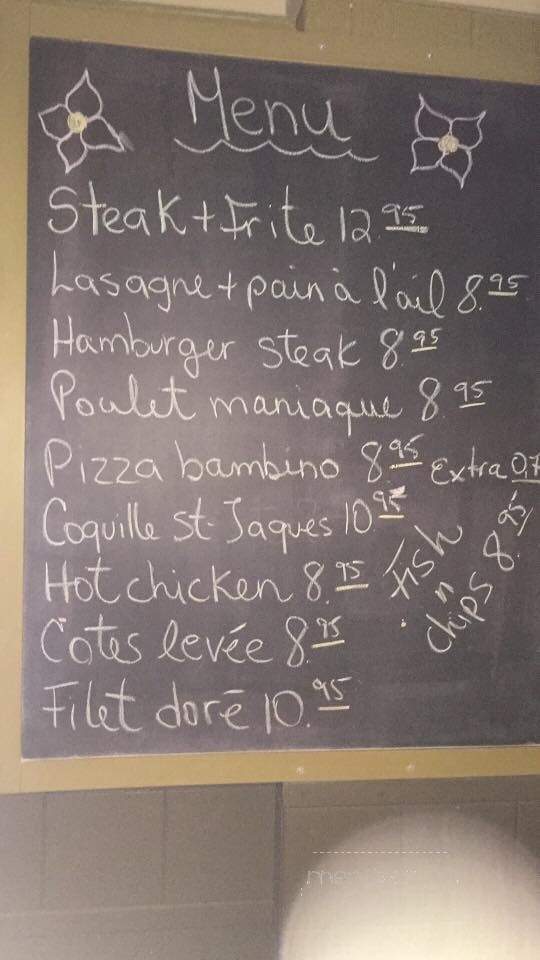 Menu
Steak + Frite 12.95
Lasagne + pain à l'ail 8.95
Hamburger steak 8.95
Poulet maniaque 8.95
Pizza bambino 8.95 Extra 0,7
Coquille St-Jaques 10.95
Hot chicken 8.95
Cotes levée 8.95
Filet doré 10.95
Fish
n
chips 8.95